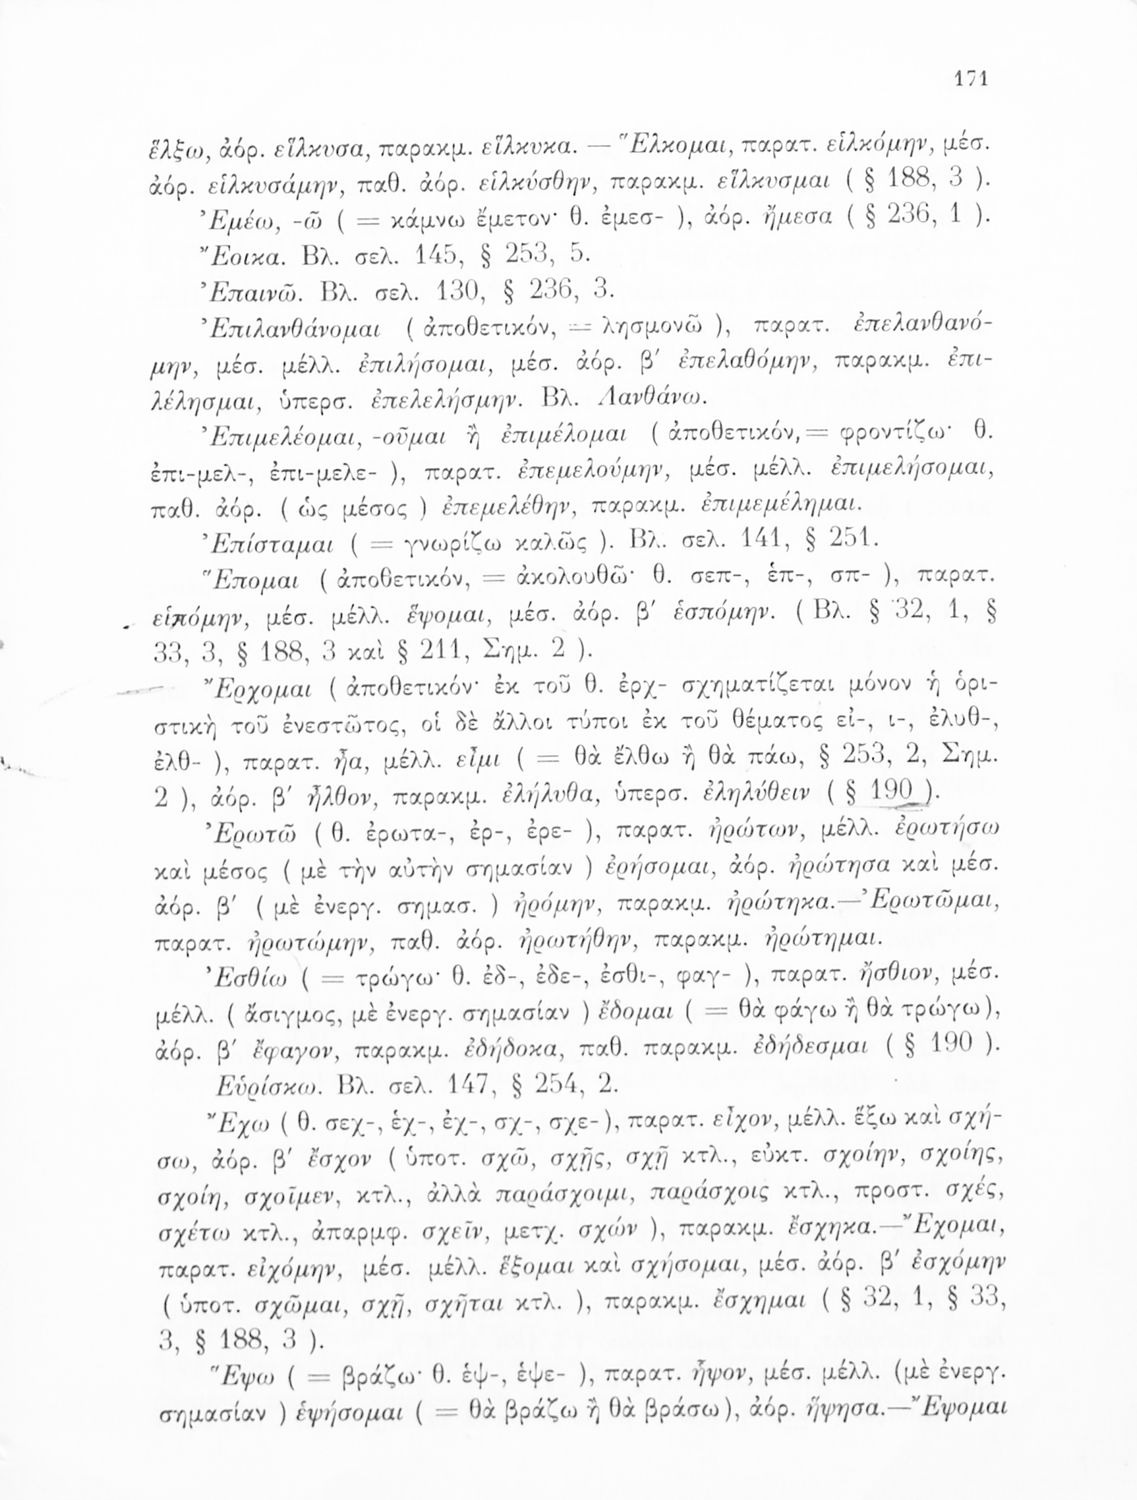 171
ἕλξω, ἀόρ. εἵλκυσα, παρακμ. εἵλκυκα. — Ἕλκομαι, παρατ. εἱλκόμην, μέσ.
ἀόρ. εἱλκυσάμην, παθ. ἀόρ. εἱλκύσθην, παρακμ. εἵλκυσμαι ( § 188, 3 ).
Ἐμέω, -ῶ ( = κάμνω ἔμετον· θ. ἐμεσ- ), ἀόρ. ἤμεσα ( § 236, 1 ).
Ἔοικα. Βλ. σελ. 145, § 253, 5.
Ἐπαινῶ. Βλ. σελ. 130, § 236, 3.
Ἐπιλανθάνομαι ( ἀποθετικόν, = λησμονῶ ), παρατ. ἐπελανθανό-
μην, μέσ. μέλλ. ἐπιλήσομαι, μέσ. ἀόρ. β′ ἐπελαθόμην, παρακμ. ἐπι-
λέλησμαι, ὑπερσ. ἐπελελήσμην. Βλ. Λανθάνω.
Ἐπιμελέομαι, -οῦμαι ἢ ἐπιμέλομαι ( ἀποθετικόν, = φροντίζω· θ.
ἐπι-μελ-, ἐπι-μελε- ), παρατ. ἐπεμελούμην, μέσ. μέλλ. ἐπιμελήσομαι,
παθ. ἀόρ. ( ὡς μέσος ) ἐπεμελέθην, παρακμ. ἐπιμεμέλημαι.
Ἐπίσταμαι ( = γνωρίζω καλῶς ). Βλ. σελ. 141, § 251.
Ἕπομαι ( ἀποθετικόν, = ἀκολουθῶ· θ. σεπ-, ἑπ-, σπ- ), παρατ.
εἱπόμην, μέσ. μέλλ. ἕψομαι, μέσ. ἀόρ. β′ ἑσπόμην. ( Βλ. § 32, 1, §
33, 3, § 188, 3 καὶ § 211, Σημ. 2 ).
Ἔρχομαι ( ἀποθετικόν· ἐκ τοῦ θ. ἐρχ- σχηματίζεται μόνον ἡ ὁρι-
στικὴ τοῦ ἐνεστῶτος, οἱ δὲ ἄλλοι τύποι ἐκ τοῦ θέματος εἰ-, ι-, ἐλυθ-,
ἐλθ- ), παρατ. ᾖα, μέλλ. εἶμι ( = θὰ ἔλθω ἢ θὰ πάω, § 253, 2, Σημ.
2 ), ἀόρ. β′ ἦλθον, παρακμ. ἐλήλυθα, ὑπερσ. ἐληλύθειν ( § 190 ).
Ἐρωτῶ ( θ. ἐρωτα-, ἐρ-, ἐρε- ), παρατ. ἠρώτων, μέλλ. ἐρωτήσω
καὶ μέσος ( μὲ τὴν αὐτὴν σημασίαν ) ἐρήσομαι, ἀόρ. ἠρώτησα καὶ μέσ.
ἀόρ. β′ ( μὲ ἐνεργ. σημασ. ) ἠρόμην, παρακμ. ἠρώτηκα.—Ἐρωτῶμαι,
παρατ. ἠρωτώμην, παθ. ἀόρ. ἠρωτήθην, παρακμ. ἠρώτημαι.
Ἐσθίω ( = τρώγω· θ. ἐδ-, ἐδε-, ἐσθι-, φαγ- ), παρατ. ἤσθιον, μέσ.
μέλλ. ( ἄσιγμος, μὲ ἐνεργ. σημασίαν ) ἔδομαι ( = θὰ φάγω ἢ θὰ τρώγω),
ἀόρ. β′ ἔφαγον, παρακμ. ἐδήδοκα, παθ. παρακμ. ἐδήδεσμαι ( § 190 ).
Εὑρίσκω. Βλ. σελ. 147, § 254, 2.
Ἔχω ( θ. σεχ-, ἑχ-, ἐχ-, σχ-, σχε- ), παρατ. εἶχον, μέλλ. ἕξω καὶ σχή-
σω, ἀόρ. β′ ἔσχον ( ὑποτ. σχῶ, σχῇς, σχῇ κτλ., εὐκτ. σχοίην, σχοίης,
σχοίη, σχοῖμεν, κτλ., ἀλλὰ παράσχοιμι, παράσχοις κτλ., προστ. σχές,
σχέτω κτλ., ἀπαρμφ. σχεῖν, μετχ. σχών ), παρακμ. ἔσχηκα.—Ἔχομαι,
παρατ. εἰχόμην, μέσ. μέλλ. ἕξομαι καὶ σχήσομαι, μέσ. ἀόρ. β′ ἐσχόμην
( ὑποτ. σχῶμαι, σχῇ, σχῆται κτλ. ), παρακμ. ἔσχημαι ( § 32, 1, § 33,
3, § 188, 3 ).
Ἕψω ( = βράζω· θ. ἑψ-, ἑψε- ), παρατ. ἧψον, μέσ. μέλλ. (μὲ ἐνεργ.
σημασίαν ) ἑψήσομαι ( = θὰ βράζω ἢ θὰ βράσω), ἀόρ. ἥψησα.—Ἔψομαι